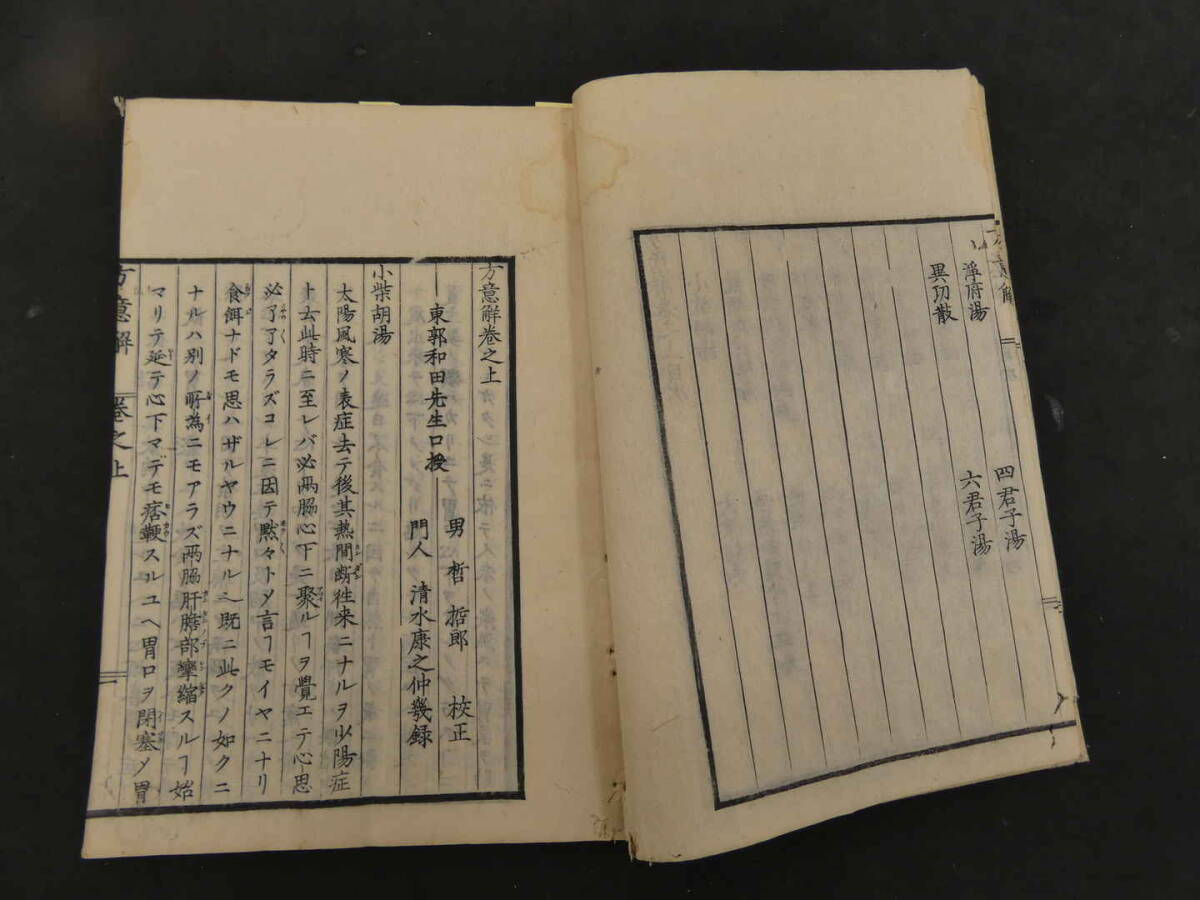 四君子湯
瀉府湯
六君子湯
異功散
方意解卷之上
東郭和田先生口授
男 哲 哲郎 校正
門人 清水康之仲幾録
小柴胡湯
太陽風寒ノ表症去テ後其熱間断徃来ニナルヲ少陽症
ト云此時ニ至レバ必両脇心下ニ聚ルヿヲ覺エテ心思
必了了タラズコレニ因テ黙々トメ言フヿモイヤニナリ
食餌ナドモ思ハザルヤウニナル也既ニ此クノ如クニ
ナルハ別ノ所為ニモアラズ両脇肝膽部攣縮スルヿ始
マリテ延テ心下マデモ痞鞕スルユヘ胃口ヲ閉塞メ胃
方意解 卷之上